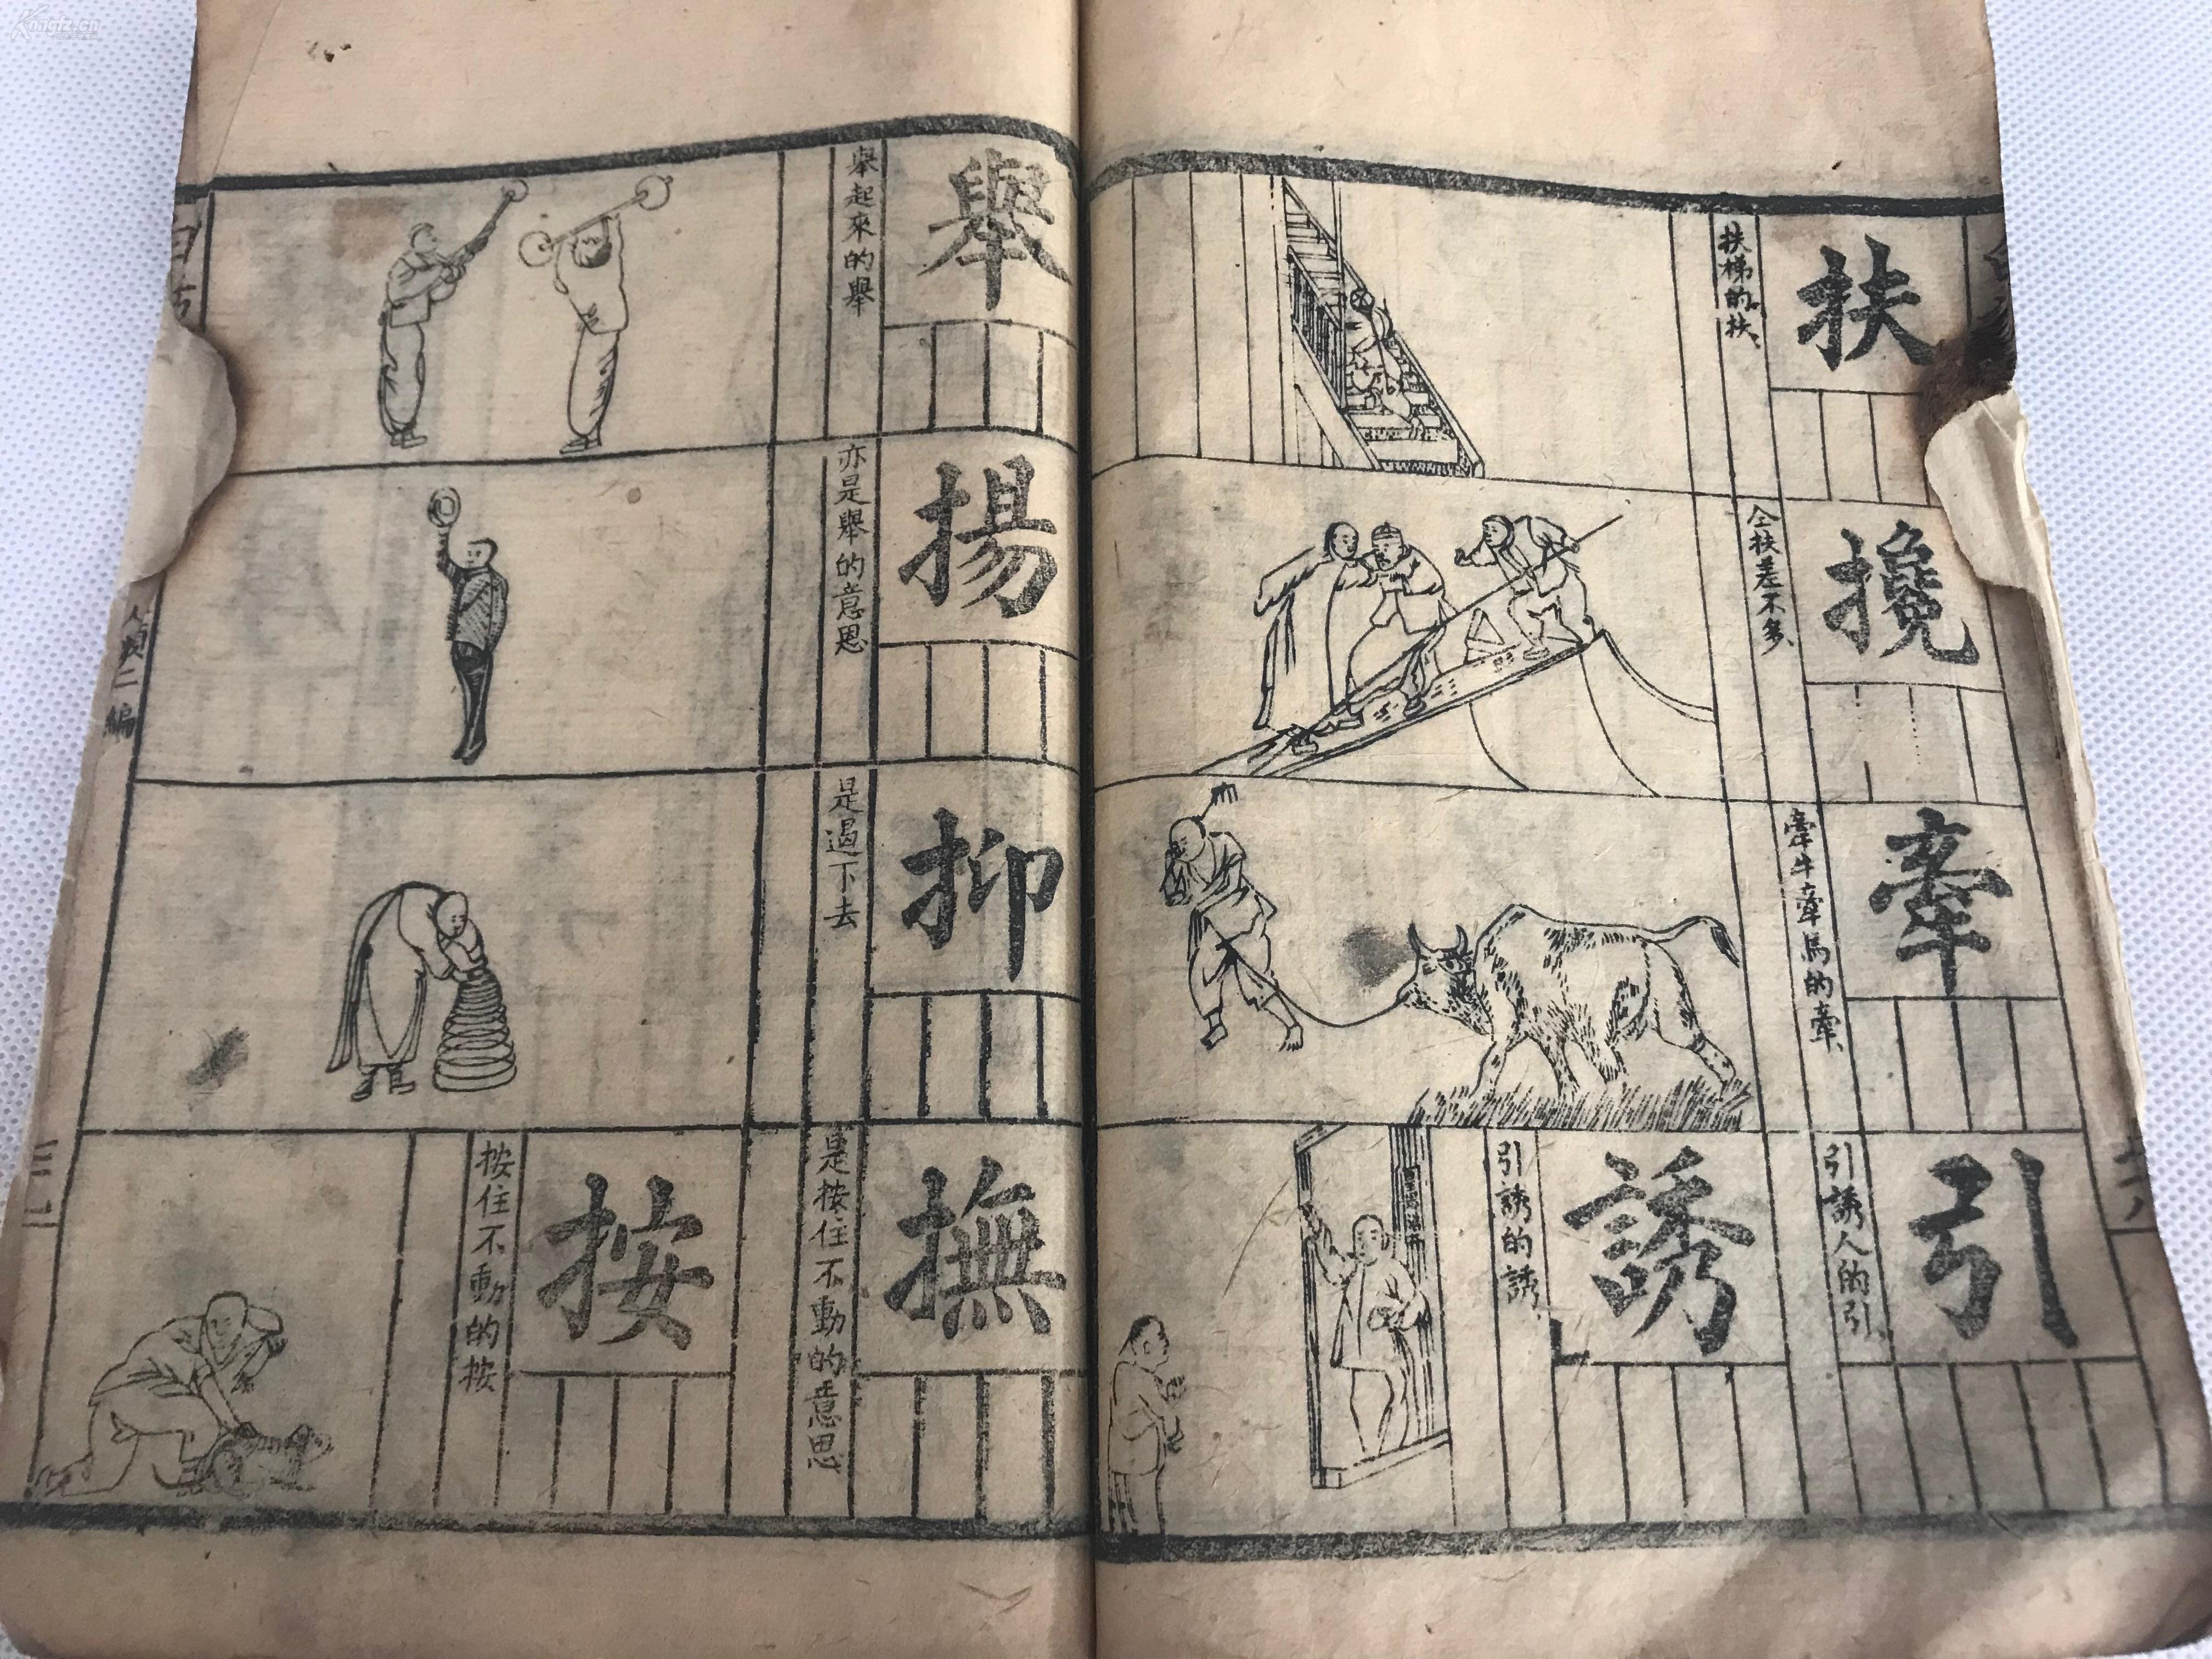 扶
扶梯的扶、
攙
仝扶差不多、
牽
牽牛牽馬的牽、
引
引誘人的引、
誘
引誘的誘、
舉
舉起來的舉
揚
亦是舉的意思
抑
是遏下去
撫
是按住不動的意思
按
按住不動的按
二編
Kongfz.cn